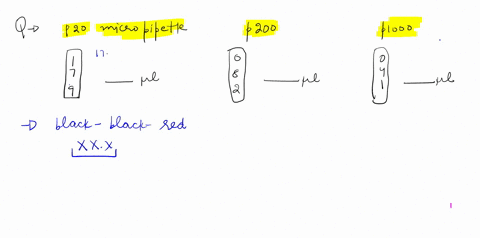 Q → p20 micropipette p200 p1000
17.
1 0 0
7 ___ μl 8 ___ μl 4 ___ μl
9 2 1
→ black - black - red
XX.X